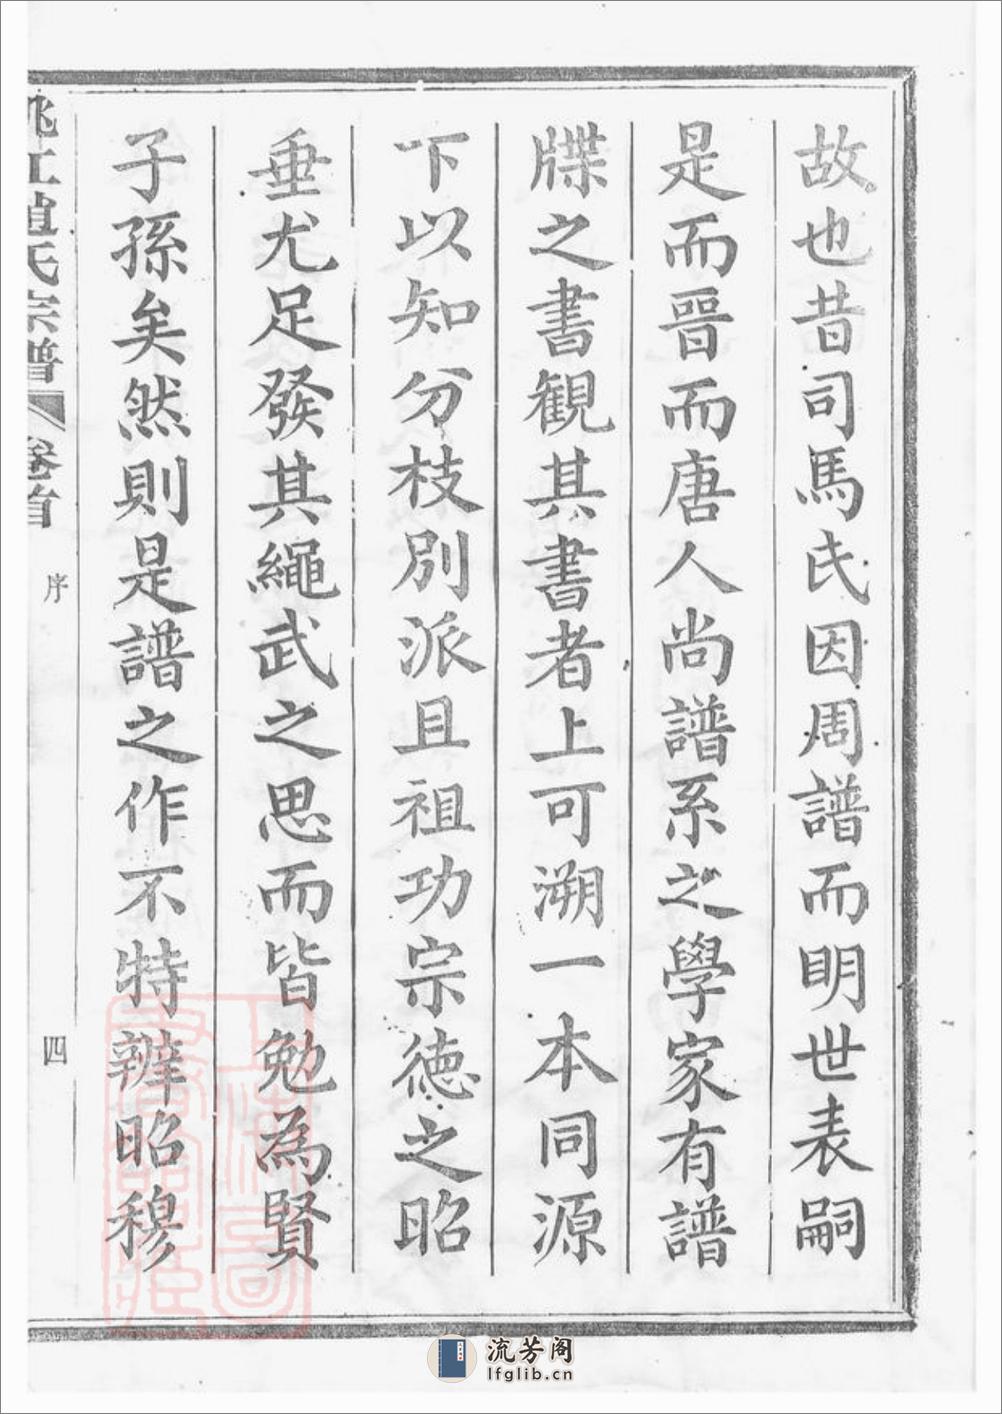 故也昔司馬氏因周譜而明世表嗣
是而晉而唐人尚譜系之學家有譜
牒之書觀其書者上可溯一本同源
下以知分枝別派且祖功宗德之昭
垂尤足發其繩武之思而皆勉為賢
子孫矣然則是譜之作不特辨昭穆
姚江趙氏宗譜
卷首
序
四
流芳阁
lfglib.cn